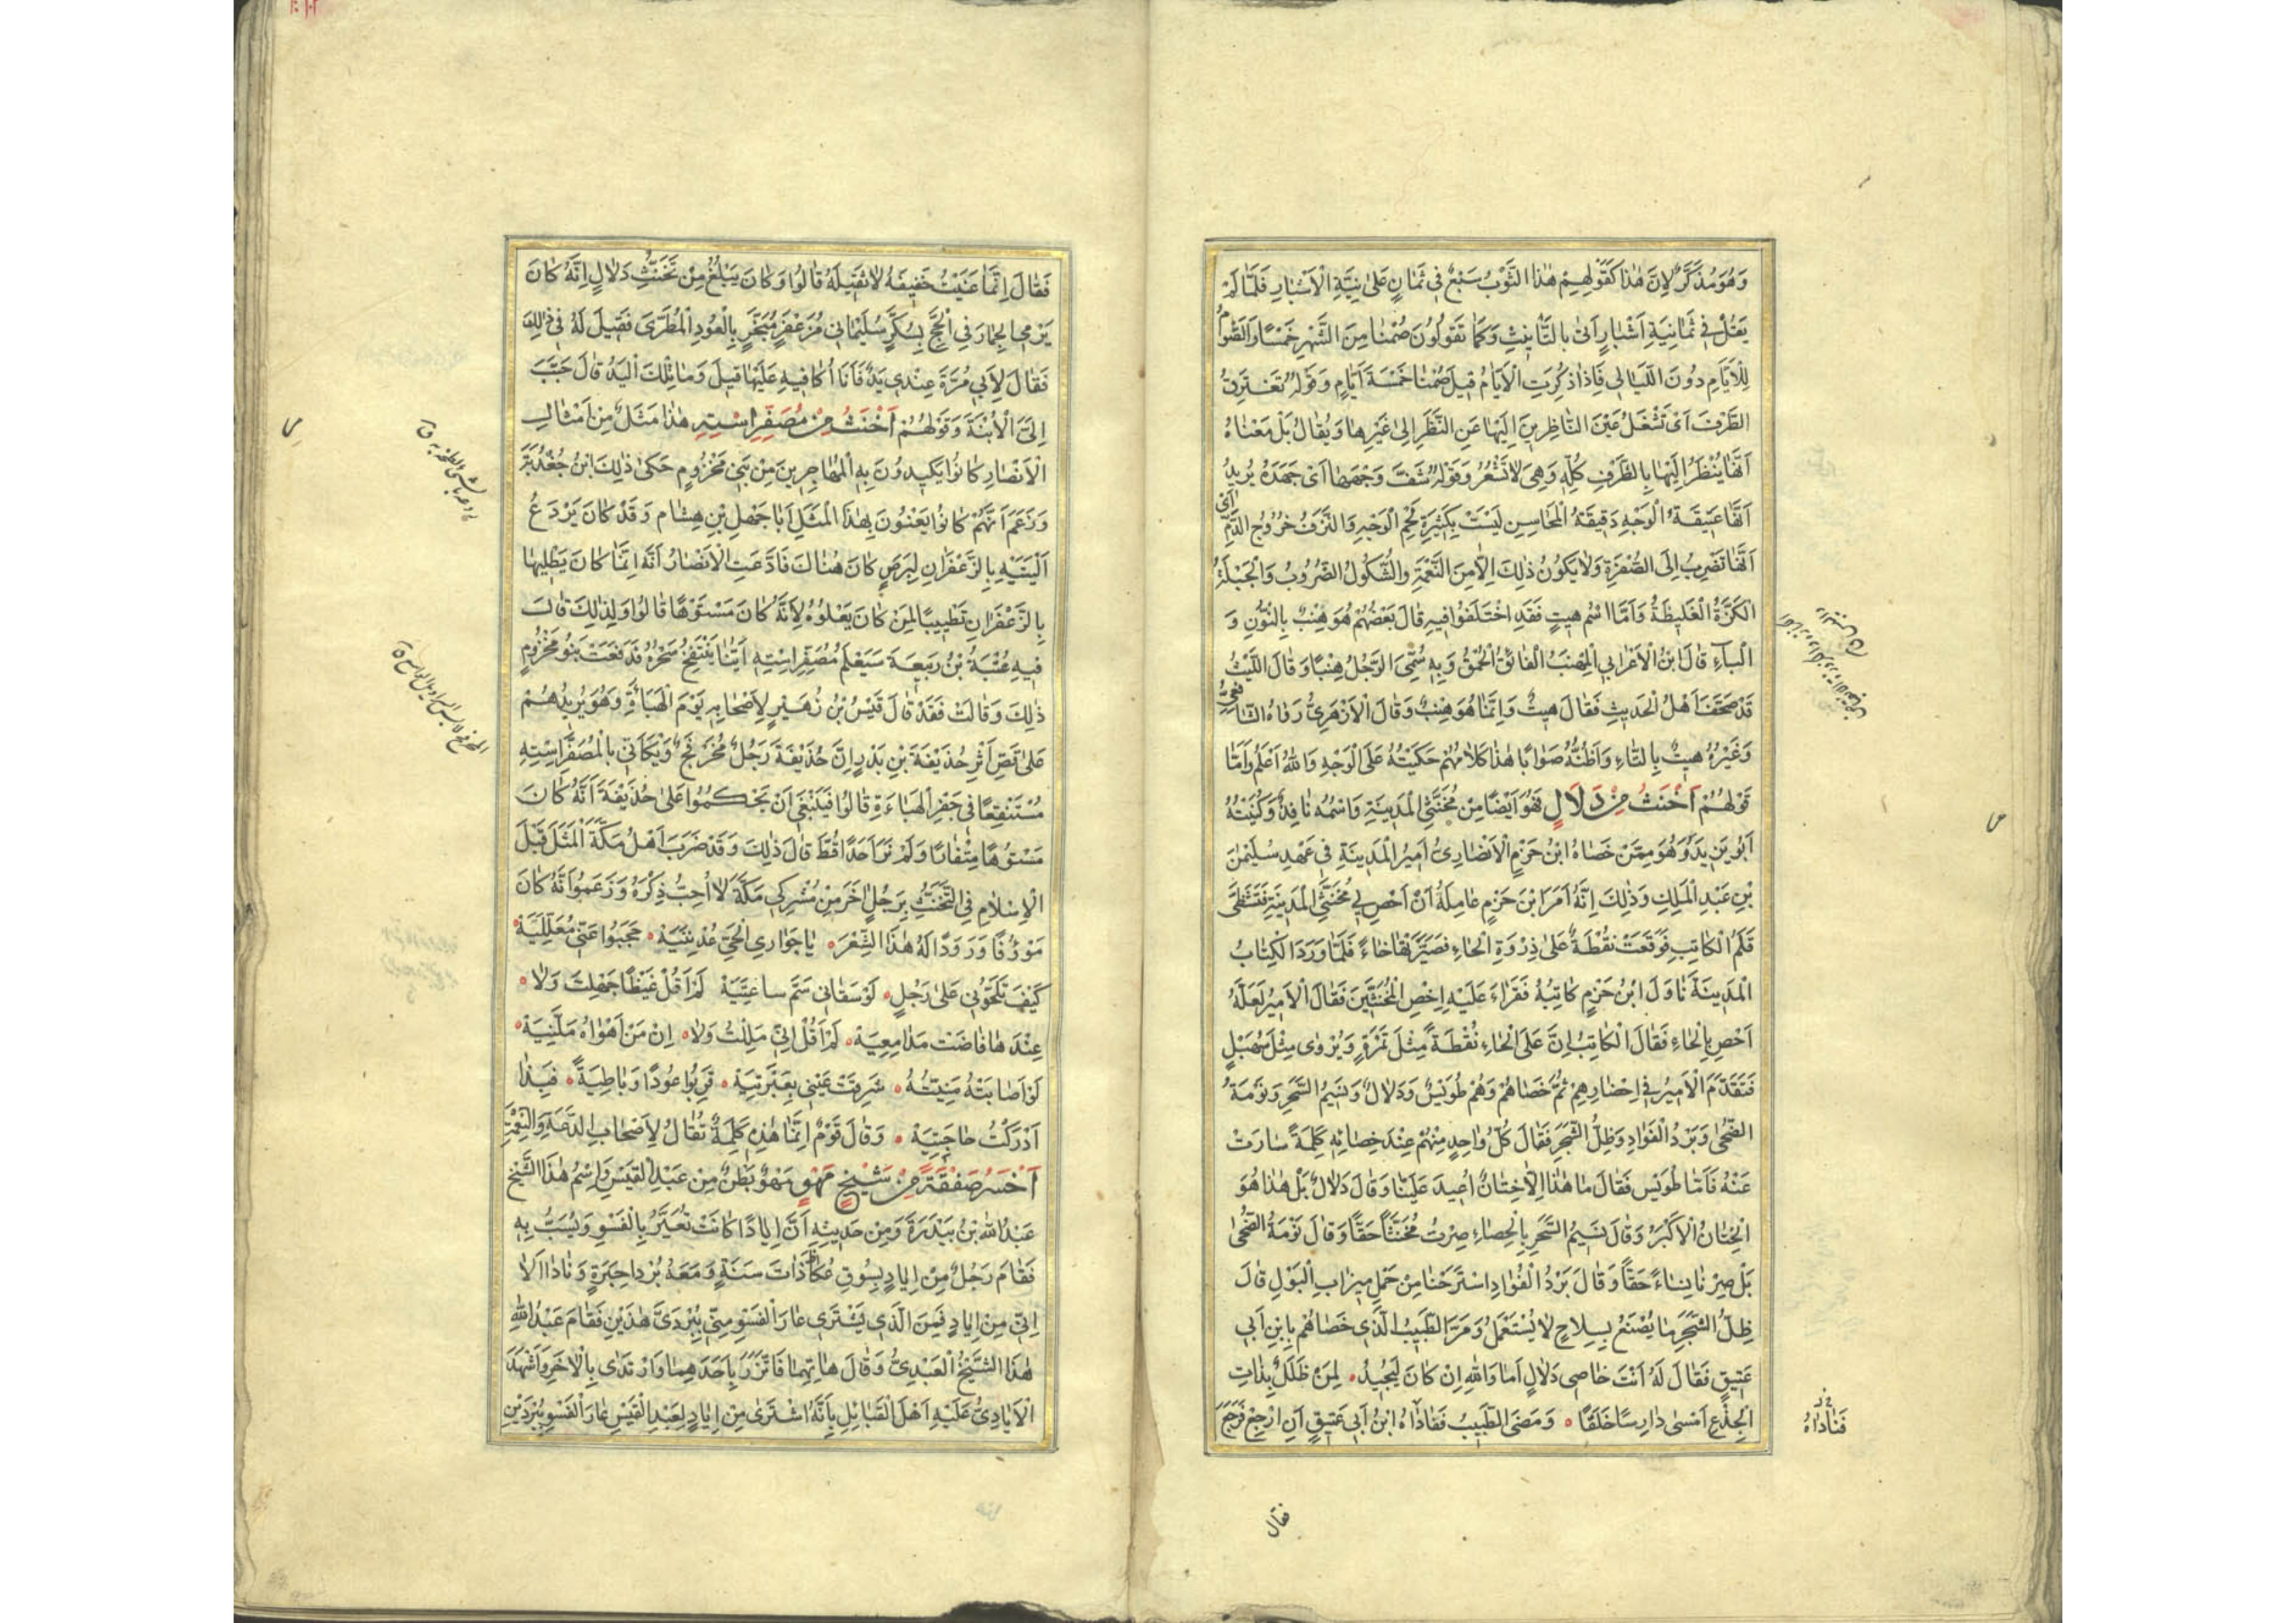 وَهُوَ مُذَكَّرٌ لِاَنَّ هٰذَا كَقَوْلِهِمْ هٰذَا الثَّوْبُ سَبْعٌ فِي ثَمَانٍ عَلىٰ نِيَّةِ الْاَشْبَارِ فَلَمَّا لَمْ
يَقُلْ فِي ثَمَانِيَةِ اَشْبَارٍ اَتىٰ بِالتَّأْنِيثِ وَكَمَا تَقُولُونَ صُمْنَا مِنَ الشَّهْرِ خَمْسًا وَالصَّوْمُ
لِلْاَيَّامِ دُونَ اللَّيَالِي فَاِذَا ذُكِرَتِ الْاَيَّامُ قِيلَ صُمْنَا خَمْسَةَ اَيَّامٍ وَقَوْلُهُ تَغْتَرِقُ
الطَّرْفَ اَىْ تَشْغَلُ عَيْنَ النَّاظِرِينَ اِلَيْهَا عَنِ النَّظَرِ اِلىٰ غَيْرِهَا وَيُقَالُ بَلْ مَعْنَاهُ
اَنَّهَا يُنْظَرُ اِلَيْهَا بِالطَّرْفِ كُلِّهِ وَهِيَ لَا تَشْعُرُ وَقَوْلُهُ شَفَّ وَجْهَهَا اَىْ جَهَدَهُ يُرِيدُ
اَنَّهَا عَتِيقَةُ الْوَجْهِ دَقِيقَةُ الْمَحَاسِنِ لَيْسَتْ بِكَثِيرَةِ لَحْمِ الْوَجْهِ وَالنُّزْفُ خُرُوجُ الدَّمِ اَىْ
اَنَّهَا تَضْرِبُ اِلَى الصُّفْرَةِ وَلَا يَكُونُ ذٰلِكَ اِلَّا مِنَ النَّعْمَةِ وَالشُّكُولُ الضُّرُوبُ وَالْجَبْلَةُ
الْكَزَّةُ الْغَلِيظَةُ وَاَمَّا اسْمُ هِيتٍ فَقَدِ اخْتَلَفُوا فِيهِ قَالَ بَعْضُهُمْ هُوَ هِنْبٌ بِالنُّونِ وَ
الْبَاءِ قَالَ ابْنُ الْاَعْرَابِي الْهِنَبُ الْفَائِقُ الْحُمْقِ وَبِهِ سُمِّيَ الرَّجُلُ هِنْبًا وَقَالَ اللَّيْثُ
قَدْ صَحَّفَ اَهْلُ الْحَدِيثِ فَقَالَ هِيتٌ وَاِنَّمَا هُوَ هِنْبٌ وَقَالَ الْاَزْهَرِيُّ رَوَاهُ الشَّافِعِيُّ
وَغَيْرُهُ هِيتٌ بِالتَّاءِ وَاَظُنُّهُ صَوَابًا هٰذَا كَلَامُهُمْ حَكَيْتُهُ عَلَى الْوَجْهِ وَاللهُ اَعْلَمُ وَاَمَّا
قَوْلُهُمْ اَخْنَثُ مِنْ دَلَالٍ فَهُوَ اَيْضًا مِنْ مُخَنَّثِي الْمَدِينَةِ وَاسْمُهُ نَافِذٌ وَكُنْيَتُهُ
اَبُو يَزِيدَ وَهُوَ مِمَّنْ خَصَاهُ ابْنُ حَزْمٍ الْاَنْصَارِيُّ اَمِيرُ الْمَدِينَةِ فِي عَهْدِ سُلَيْمٰنَ
بْنِ عَبْدِ الْمَلِكِ وَذٰلِكَ اِنَّهُ اَمَرَ ابْنَ حَزْمٍ عَامِلَهُ اَنْ اَحْصِ لِي مُخَنَّثِي الْمَدِينَةِ فَتَشَظَّى
قَلَمُ الْكَاتِبِ فَوَقَعَتْ نُقْطَةٌ عَلىٰ ذِرْوَةِ الْحَاءِ فَصَيَّرَتْهَا خَاءً فَلَمَّا وَرَدَ الْكِتَابُ
الْمَدِينَةَ نَاوَلَ ابْنُ حَزْمٍ كَاتِبَهُ فَقَرَاءَ عَلَيْهِ اِخْصِ الْمُخَنَّثِينَ فَقَالَ الْاَمِيرُ لَعَلَّهُ
اَحْصِ بِالْحَاءِ فَقَالَ الْكَاتِبُ اِنَّ عَلَى الْحَاءِ نُقْطَةً مِثْلَ تَمْرَةٍ وَيُرْوٰى مِثْلَ سُهَيْلٍ
فَتَقَدَّمَ الْاَمِيرُ فِي اِحْضَارِهِمْ ثُمَّ خَصَاهُمْ وَهُمْ طُوَيْسٌ وَدَلَالٌ وَنَسِيمُ السَّحَرِ وَنَوْمَةُ
الضُّحىٰ وَبَرْدُ الْفُوَادِ وَظِلُّ الشَّجَرِ فَقَالَ كُلُّ وَاحِدٍ مِنْهُمْ عِنْدَ خِصَائِهِ كَلِمَةً سَارَتْ
عَنْهُ فَاَمَّا طُوَيْسٌ فَقَالَ مَا هٰذَا اِلَّا خِتَانٌ اُعِيدَ عَلَيْنَا وَقَالَ دَلَالٌ بَلْ هٰذَا هُوَ
الْخِتَانُ الْاَكْبَرُ وَقَالَ نَسِيمُ السَّحَرِ بِالْخِصَاءِ صِرْتُ مُخَنَّثًا حَقًّا وَقَالَ نَوْمَةُ الضُّحىٰ
بَلْ صِرْنَا نِسَاءً حَقًّا وَقَالَ بَرْدُ الْفُوَادِ اسْتَرَحْنَا مِنْ حَمْلِ مِيزَابِ الْبَوْلِ قَالَ
ظِلُّ الشَّجَرِ مَا يُصْنَعُ بِسِلَاحٍ لَا يُسْتَعْمَلُ وَمَرَّ الطَّبِيبُ الَّذِي خَصَاهُمْ بِابْنِ اَبِي
عَتِيقٍ فَقَالَ لَهُ اَنْتَ خَاصِي دَلَالٍ اَمَا وَاللهِ اِنْ كَانَ لَيُجِيدُ لِمَنْ طَلَلٌ بِذَاتِ
الْجِذْعِ اَمْسىٰ دَارِسًا خَلَقًا وَمَضَى الطَّبِيبُ فَنَادَاهُ ابْنُ اَبِي عَتِيقٍ اَنِ ارْجِعْ فَرَجَعَ
فَنَادَاهُ
فقال
فَقَالَ اِنَّمَا عَنَيْتُ خَفِيفَهُ لَا ثَقِيلَهُ قَالُوا وَكَانَ يَبْلُغُ مِنْ تَخَنُّثِ دَلَالٍ اِنَّهُ كَانَ
يَرْمِي الْجِمَارَ فِي الْحَجِّ بِسُكَّرٍ سُلَيْمَانِيٍّ مُزَعْفَرٍ مُبَخَّرٍ بِالْعُودِ الْمُطَرَّى فَقِيلَ لَهُ فِي ذٰلِكَ
فَقَالَ لِاَبِي مُرَّةَ عِنْدِي يَدٌ فَاَنَا اُكَافِيهِ عَلَيْهَا قِيلَ وَمَا تِلْكَ الْيَدُ قَالَ حَبَّبَ
اِلَيَّ الْاُبْنَةَ وَقَوْلُهُمْ اَخْنَثُ مِنْ مُصَفِّرِ اسْتِهِ هٰذَا مَثَلٌ مِنْ اَمْثَالِ
الْاَنْصَارِ كَانُوا يَكِيدُونَ بِهِ الْمُهَاجِرِينَ مِنْ بَنِي مَخْزُومٍ حَكىٰ ذٰلِكَ ابْنُ جُعْدُبَةَ
وَزَعَمَ اَنَّهُمْ كَانُوا يَعْنُونَ بِهٰذَا الْمَثَلِ اَبَا جَهْلِ بْنِ هِشَامٍ وَقَدْ كَانَ يَرْدَعُ
اَلْيَتَيْهِ بِالزَّعْفَرَانِ لِبَرَصٍ كَانَ هُنَاكَ فَادَّعَتِ الْاَنْصَارُ اَنَّهُ اِنَّمَا كَانَ يَطْلِيهَا
بِالزَّعْفَرَانِ تَطْيِيبًا لِمَنْ كَانَ يَعْلُوهُ لِاَنَّهُ كَانَ مَسْتُوهًا قَالُوا وَلِذٰلِكَ قَالَ
فِيهِ عُتْبَةُ بْنُ رَبِيعَةَ سَيَعْلَمُ مُصَفِّرُ اسْتِهِ اَيُّنَا يَنْتَفِخُ سَحْرُهُ فَدَفَعَتْ بَنُو مَخْزُومٍ
ذٰلِكَ وَقَالَتْ فَقَدْ قَالَ قَيْسُ بْنُ زُهَيْرٍ لِاَصْحَابِهِ يَوْمَ الْهَبَاءَةِ وَهُوَ يُرِيدُهُمْ
عَلىٰ قَصِّ اَثَرِ حُذَيْفَةَ بْنِ بَدْرٍ اِنَّ حُذَيْفَةَ رَجُلٌ مُخَرْفَجٌ وَيْكَاَنِّي بِالْمُصَفِّرِ اسْتِهِ
مُسْتَنْقِعًا فِي جَفْرِ الْهَبَاءَةِ قَالُوا فَيَنْبَغِي اَنْ يَحْكُمُوا عَلىٰ حُذَيْفَةَ اَنَّهُ كَانَ
مَسْتُوهًا مِثْفَارًا وَلَمْ نَرَ اَحَدًا قَطُّ قَالَ ذٰلِكَ وَقَدْ ضَرَبَ اَهْلُ مَكَّةَ الْمَثَلَ قَبْلَ
الْاِسْلَامِ فِي التَّخَنُّثِ بِرَجُلٍ اٰخَرَ مِنْ مُشْرِكِي مَكَّةَ لَا اُحِبُّ ذِكْرَهُ وَزَعَمُوا اَنَّهُ كَانَ
مَوْؤُفًا وَرَوَوْا لَهُ هٰذَا الشِّعْرَ يَا جَوَارِي الْحَيِّ عُدْنَنِيَهْ حَجَبُوا عَنِّي مُعَلِّلِيَهْ
كَيْفَ تَلْحُونِي عَلىٰ رَجُلٍ لَوْ سَقَانِي سَمَّ سَاعَتِيَهْ لَمْ اَقُلْ غَيْظًا جَهِلْتَ وَلَا
عِنْدَهَا فَاضَتْ مَدَامِعِيَهْ لَمْ اَقُلْ اِنِّي مَلِلْتُ وَلَا اِنَّ مَنْ اَهْوَاهُ مَلَّنِيَهْ
لَوْ اَصَابَتْهُ مَنِيَّتُهُ شَرِقَتْ عَيْنِي بِعَبْرَتِيَهْ قَرِّبُوا عُودًا وَبَاطِيَةً فَبِذَا
اَدْرَكْتُ حَاجَتِيَهْ وَقَالَ قَوْمٌ اِنَّمَا هٰذِهِ كَلِمَةٌ تُقَالُ لِاَصْحَابِ الدَّعَةِ وَالنِّعْمَةِ
اَخْسَرُ صَفْقَةً مِنْ شَيْخِ مَهْوٍ مَهْوٌ بَطْنٌ مِنْ عَبْدِ الْقَيْسِ وَاسْمُ هٰذَا الشَّيْخِ
عَبْدُ اللهِ بْنُ بَيْدَرَةَ وَمِنْ حَدِيثِهِ اَنَّ اِيَادًا كَانَتْ تُعَيَّرُ بِالْفَسْوِ وَيُسَبُّ بِهِ
فَقَامَ رَجُلٌ مِنْ اِيَادٍ بِسُوقِ عُكَاظَ ذَاتَ سَنَةٍ وَمَعَهُ بُرْدَا حِبَرَةٍ وَنَادَا اَلَا
اِنِّي مِنْ اِيَادٍ فَمَنِ الَّذِي يَشْتَرِي عَارَ الْفَسْوِ مِنِّي بِبُرْدَيَّ هٰذَيْنِ فَقَامَ عَبْدُ اللهِ
هٰذَا الشَّيْخُ الْعَبْدِيُّ وَقَالَ هَاتِهِمَا فَاتَّزَرَ بِاَحَدِهِمَا وَارْتَدَى بِالْاٰخَرِ وَاَشْهَدَ
الْاَيَادِيُّ عَلَيْهِ اَهْلَ الْقَبَائِلِ بِاَنَّهُ اشْتَرىٰ مِنْ اِيَادٍ لِعَبْدِ الْقَيْسِ عَارَ الْفَسْوِ بِبُرْدَيْنِ